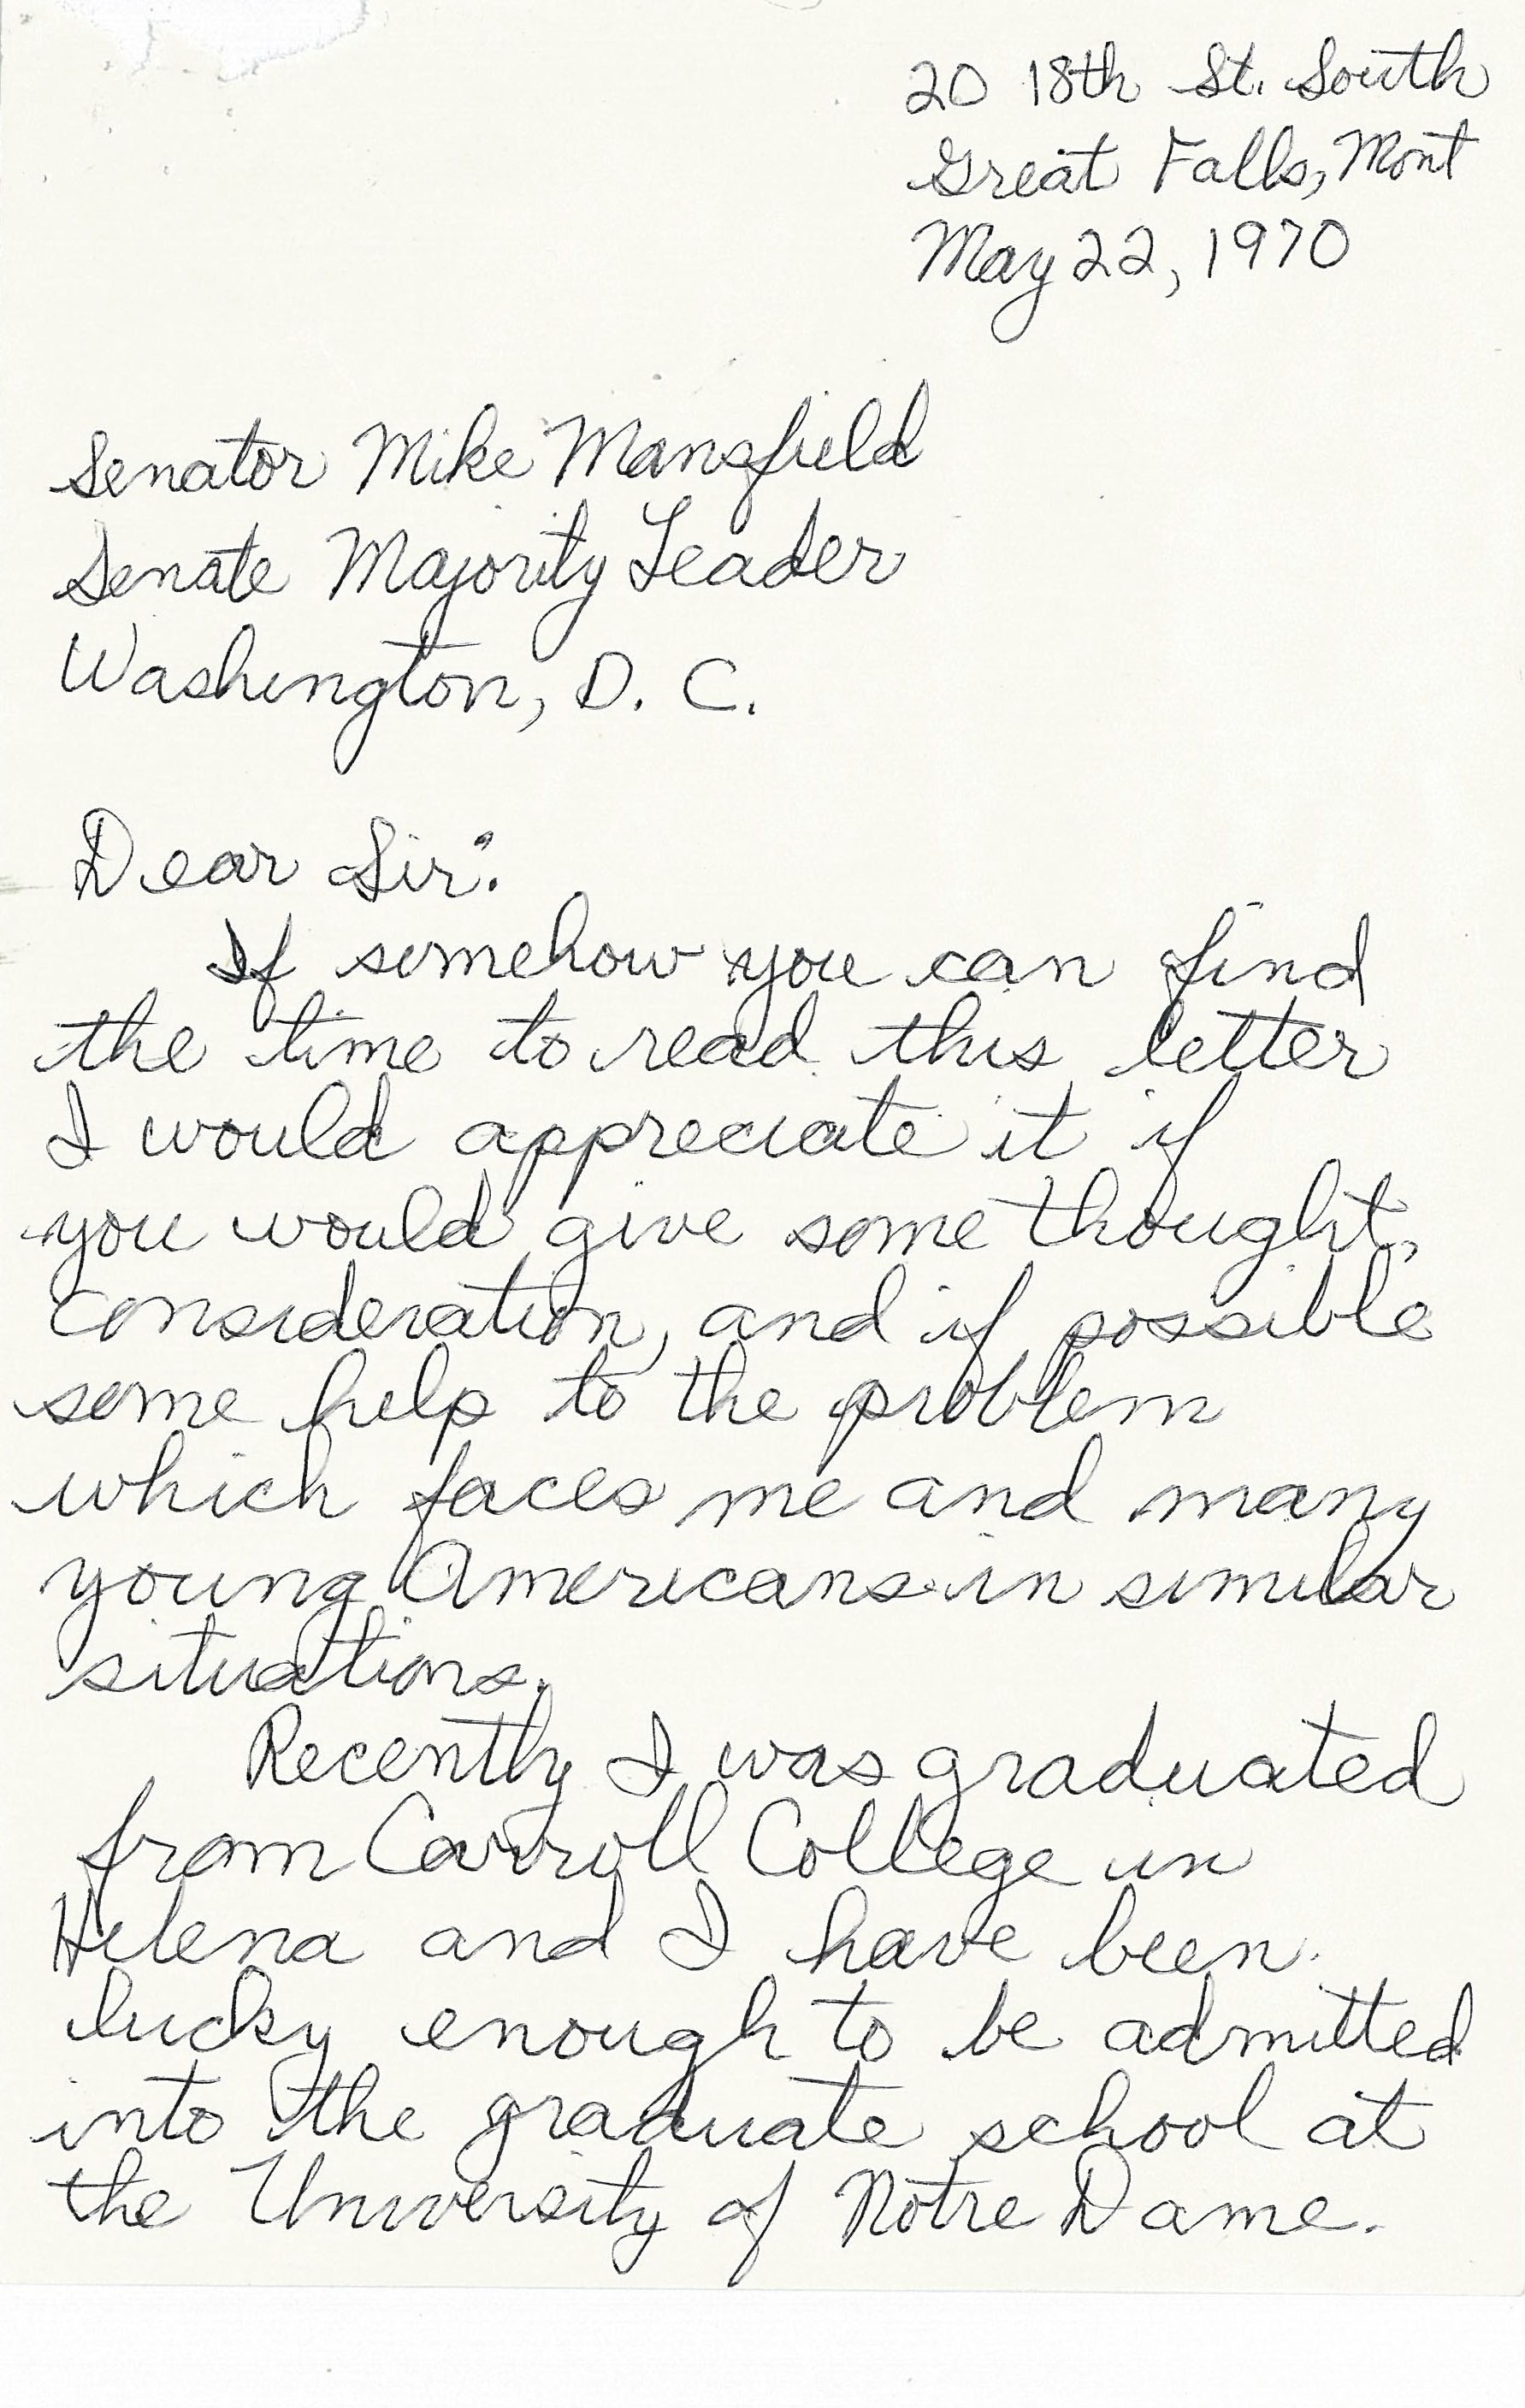 20 18th St. South
Great Falls, Mont
May 22, 1970
Senator Mike Mansfield
Senate Majority Leader
Washington, D. C.
Dear Sir:
If somehow you can find
the time to read this letter
I would appreciate it if
you would give some thought,
consideration, and if possible
some help to the problem
which faces me and many
young Americans in similar
situations.
Recently I was graduated
from Carroll College in
Helena and I have been
lucky enough to be admitted
into the graduate school at
the University of Notre Dame.